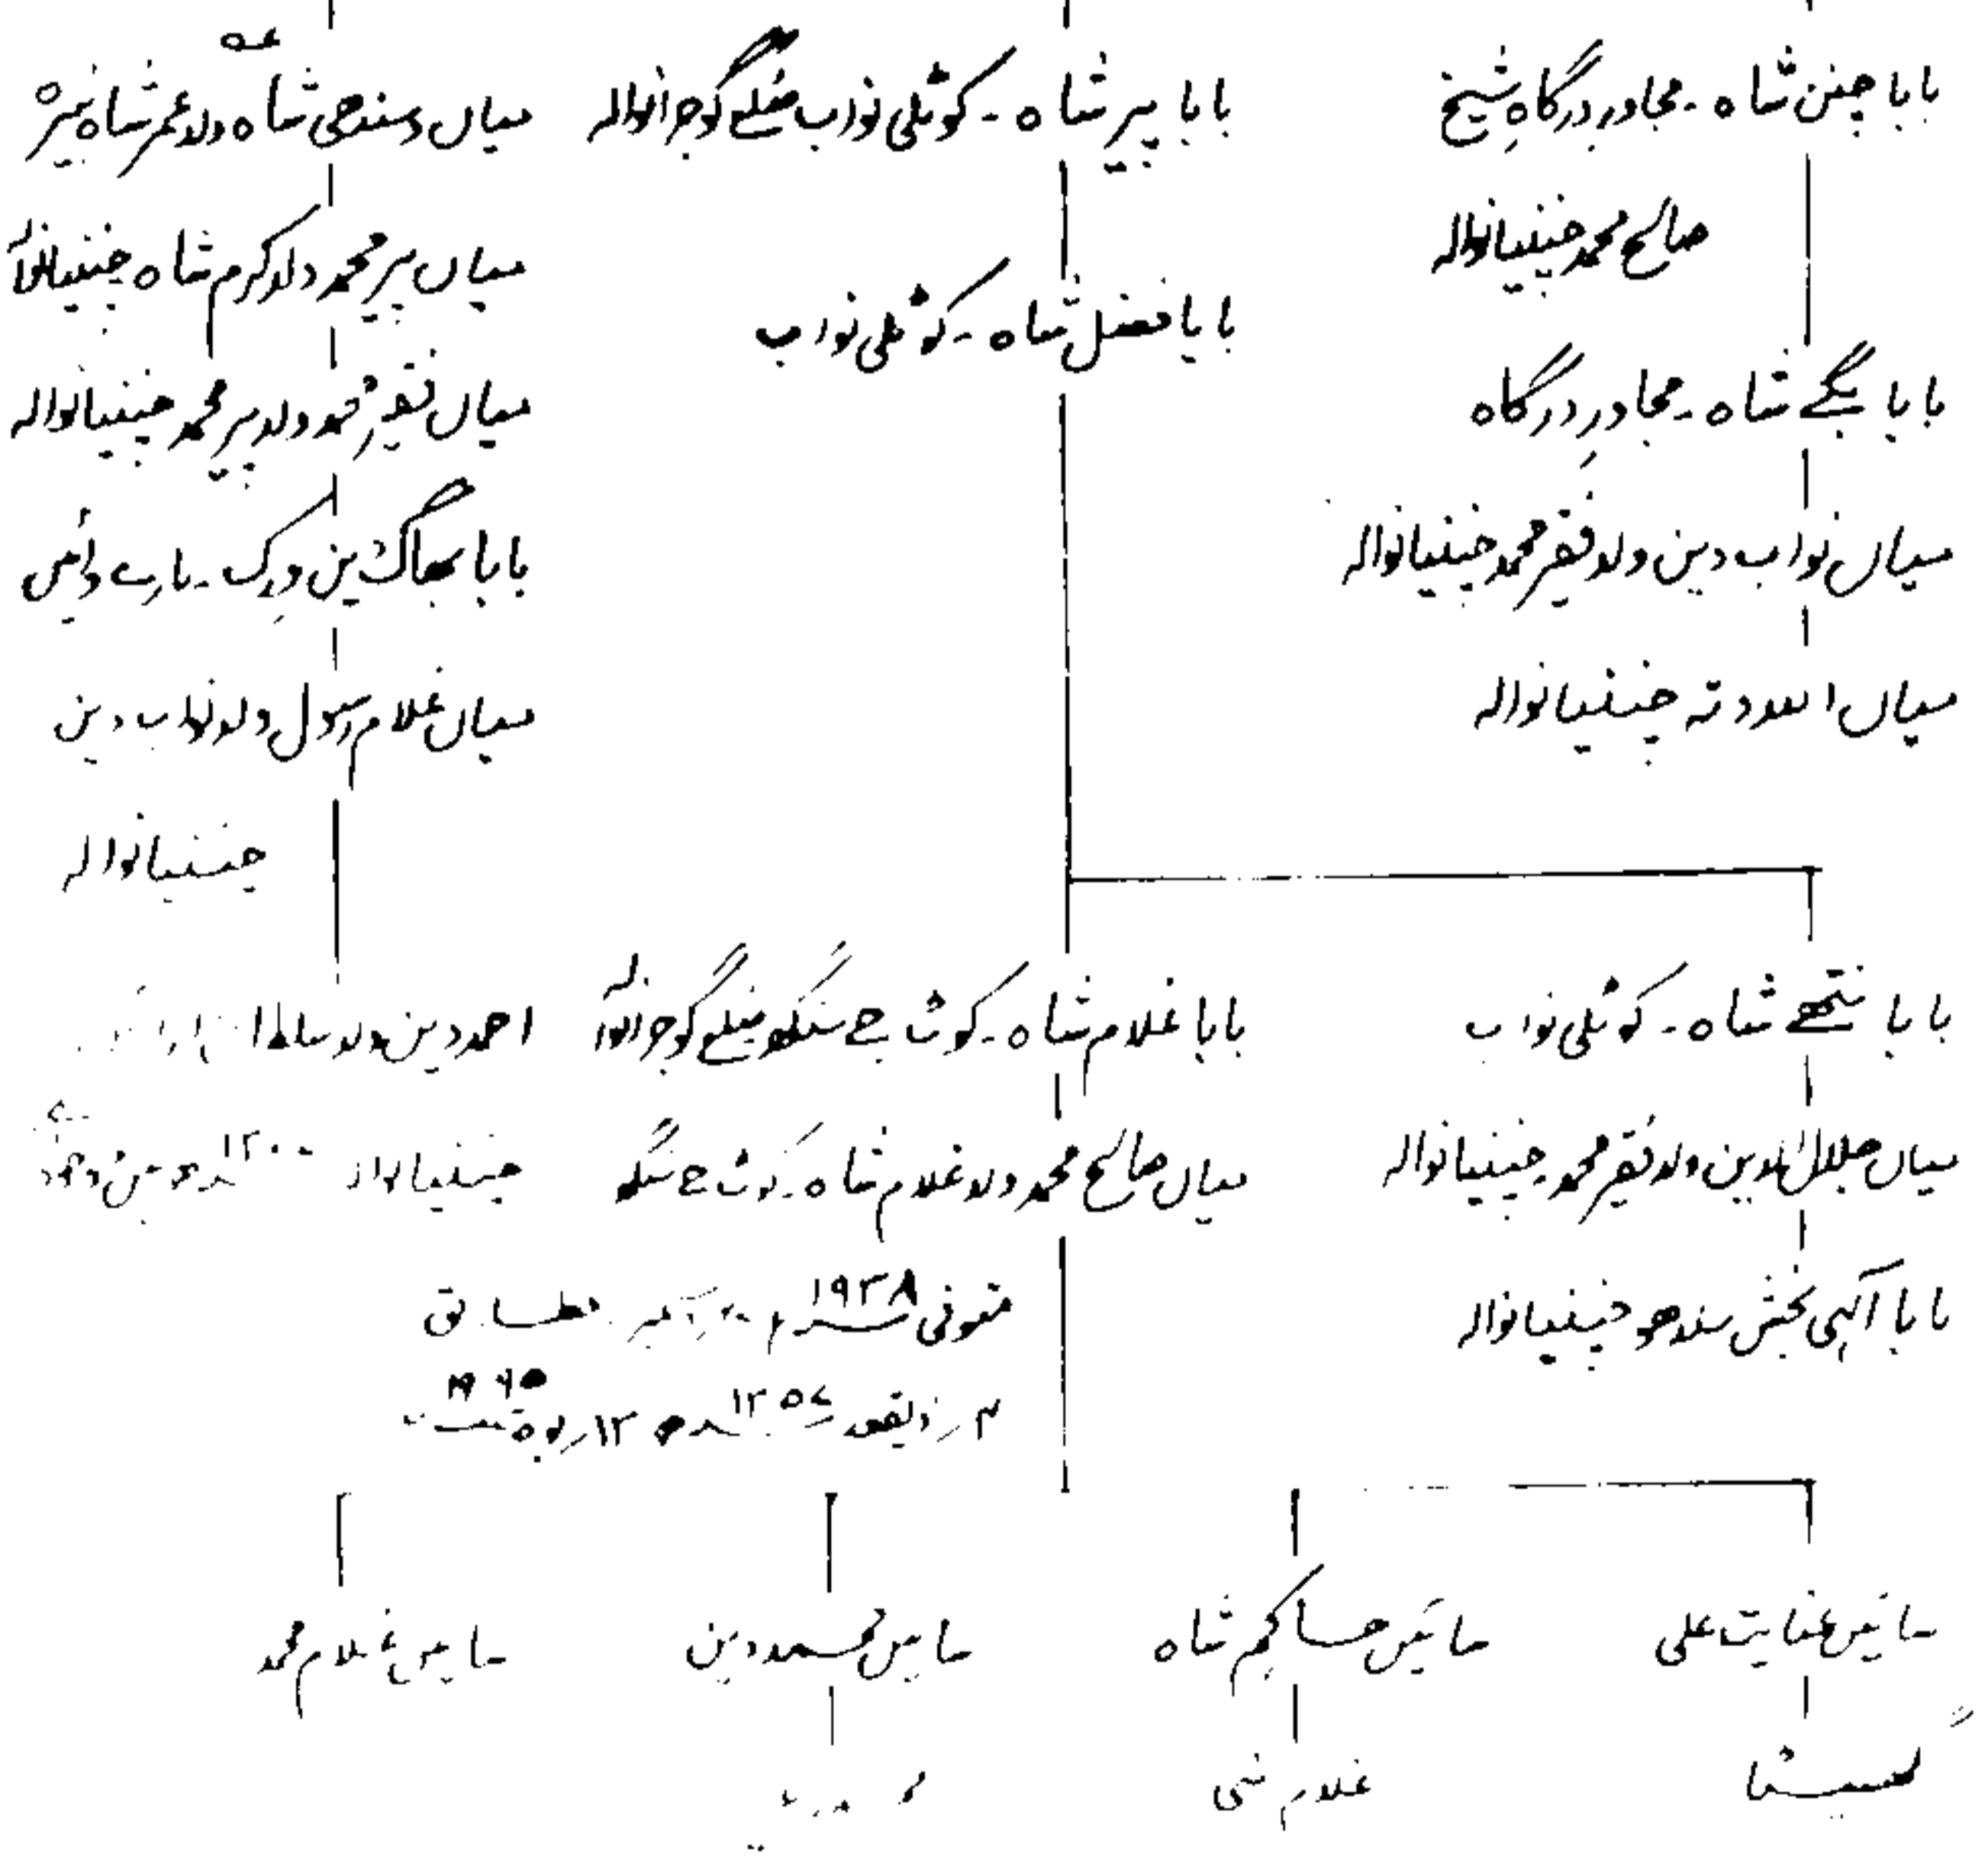 بابا چنن شاہ۔ مجاور درگاہِ شیخ
صالح محمد چنبیانوالہ
بابا بگے شاہ۔ مجاورِ درگاہ
میاں نواب دین ولد فقیر محمد چنبیانوالہ
میاں اللہ دتہ چنبیانوالہ
بابا پیر شاہ۔ کوٹلی نواب ضلع گوجرانوالہ
بابا فضل شاہ۔ کوٹلی نواب
میاں وسندھی شاہ ولد عمر شاہ
میاں پیر محمد ولد کرم شاہ چنبیانوالہ
میاں فقیر محمد ولد پیر محمد چنبیانوالہ
بابا بھاگ بن ورک۔
میاں غلام رسول ولد نواب دین
چنبیانوالہ
بابا نتھے شاہ۔ کوٹلی نواب
میاں جلال الدین ولد فقیر محمد۔ چنبیانوالہ
بابا الٰہی بخش سندھو چنبیانوالہ
بابا غلام شاہ۔ کوٹ جے سنگھ ضلع گوجرانوالہ
میاں صالح محمد ولد غلام شاہ۔ کوٹ جے سنگھ
متوفی ۱۹۳۸ء مطابق
احمد دین ولد
چنبیانوالہ
سائیں عنایت علی
سائیں حاکم شاہ
سائیں محمد دین
سائیں غلام محمد
گھسیٹا
غلام نبی